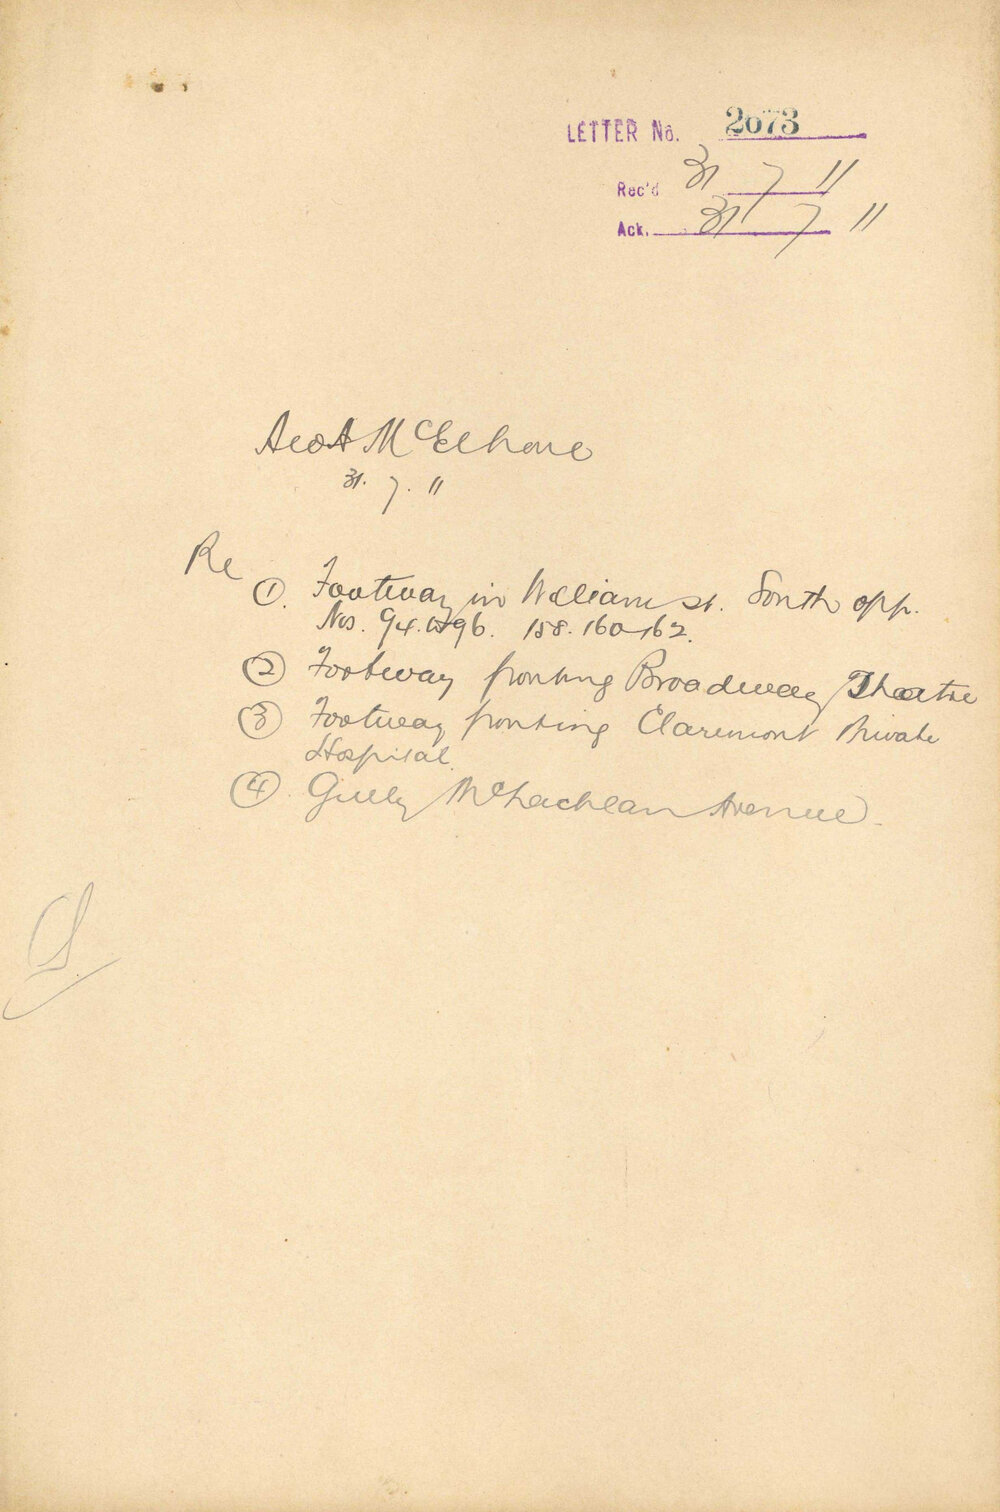 LETTER No. 2073
Rec'd 31 7 11
Ack. 31 7 11
McElhone
31. 7. 11
Re
① Footway in William St. South opp.
Nos. 94. 96. 158. 160 162.
② Footway fronting Broadway Theatre
③ Footway fronting Claremont Private
Hospital.
④ Gully McLachlan Avenue.